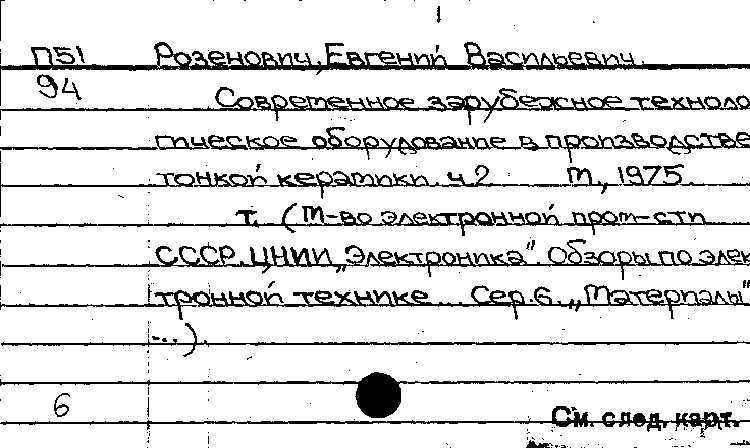 П51 Розенович, Евгений Васильевич.
94 Современное зарубежное техноло
гическое оборудование в производстве
тонкой керамики. ч.2 М., 1975.
т. (М-во электронной пром-сти
СССР. ЦНИИ „Электроника". Обзоры по элек
тронной технике... Сер.6. „Материалы"
...).
6
См. след. карт.